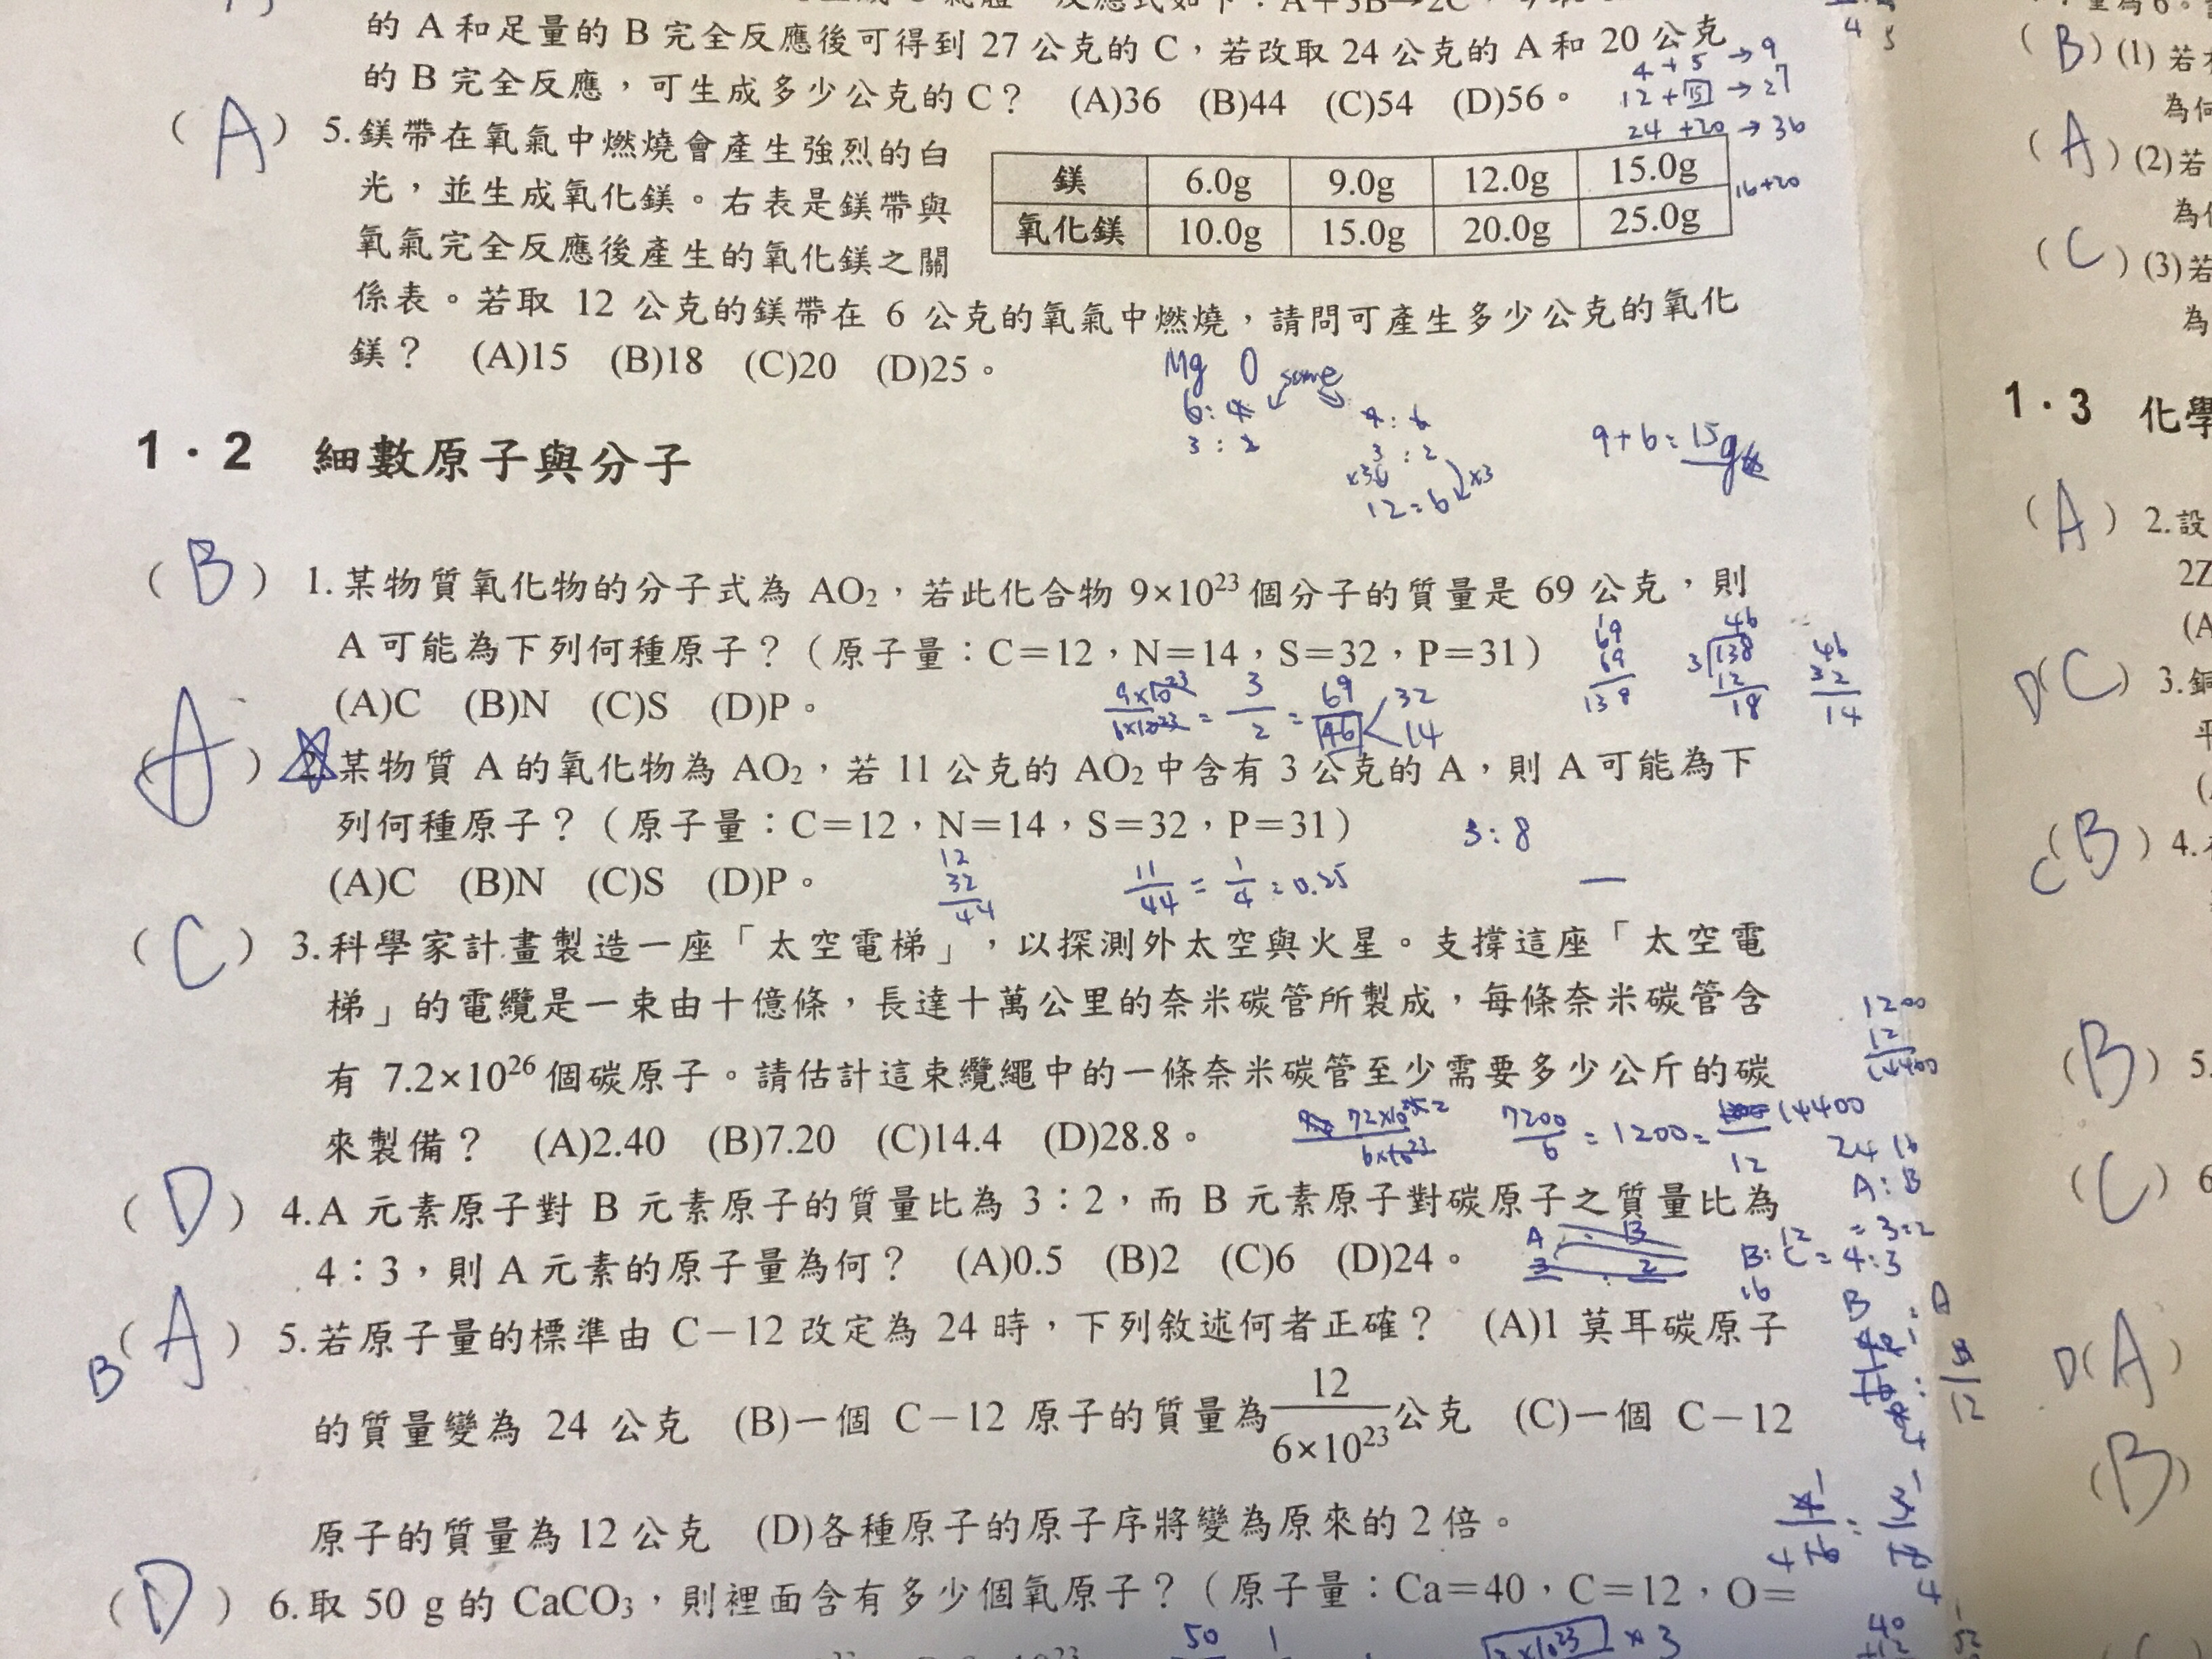 的 A 和足量的 B 完全反應後可得到 27 公克的 C，若改取 24 公克的 A 和 20 公克
的 B 完全反應，可生成多少公克的 C？ (A)36 (B)44 (C)54 (D)56。
4 + 5 → 9
12 + 15 → 27
24 + 20 → 36
16+20
( A ) 5.鎂帶在氧氣中燃燒會產生強烈的白
光，並生成氧化鎂。右表是鎂帶與
氧氣完全反應後產生的氧化鎂之關
係表。若取 12 公克的鎂帶在 6 公克的氧氣中燃燒，請問可產生多少公克的氧化
鎂？ (A)15 (B)18 (C)20 (D)25。
鎂 6.0g 9.0g 12.0g 15.0g
氧化鎂 10.0g 15.0g 20.0g 25.0g
Mg O some
6: 4
3 : 2
3 : 2
×3 ×3
12 = 6
9+6 = 15g
1・2 細數原子與分子
( B ) 1.某物質氧化物的分子式為 AO₂，若此化合物 9×10²³ 個分子的質量是 69 公克，則
A 可能為下列何種原子？（原子量：C＝12，N＝14，S＝32，P＝31）
(A)C (B)N (C)S (D)P。
9×10²³ / 6×10²³ = 3/2 = 69/46 < 32 14
69
69
138
46
3 138
12
18
46
32
14
( A ) 2.某物質 A 的氧化物為 AO₂，若 11 公克的 AO₂ 中含有 3 公克的 A，則 A 可能為下
列何種原子？（原子量：C＝12，N＝14，S＝32，P＝31）
(A)C (B)N (C)S (D)P。
3 : 8
12
32
44
11/44 = 1/4 = 0.25
( C ) 3.科學家計畫製造一座「太空電梯」，以探測外太空與火星。支撐這座「太空電
梯」的電纜是一束由十億條，長達十萬公里的奈米碳管所製成，每條奈米碳管含
有 7.2×10²⁶ 個碳原子。請估計這束纜繩中的一條奈米碳管至少需要多少公斤的碳
來製備？ (A)2.40 (B)7.20 (C)14.4 (D)28.8。
7200/6 = 1200 = 14400/12
1200
12
14400
( D ) 4.A 元素原子對 B 元素原子的質量比為 3：2，而 B 元素原子對碳原子之質量比為
4：3，則 A 元素的原子量為何？ (A)0.5 (B)2 (C)6 (D)24。
24 16
A : B
= 3:2
12
B : C = 4:3
16
B ( A ) 5.若原子量的標準由 C－12 改定為 24 時，下列敘述何者正確？ (A)1 莫耳碳原子
的質量變為 24 公克 (B)一個 C－12 原子的質量為 12/6×10²³ 公克 (C)一個 C－12
原子的質量為 12 公克 (D)各種原子的原子序將變為原來的 2 倍。
( D ) 6.取 50 g 的 CaCO₃，則裡面含有多少個氧原子？（原子量：Ca＝40，C＝12，O＝
50 1
×3
( B ) (1) 若
為何
( A ) (2)若
為
( C ) (3)若
為
1・3 化學
( A ) 2.設
2Z
(A
D ( C ) 3.
平
C ( B ) 4.
( B ) 5.
( C ) 6
D ( A )
( B )